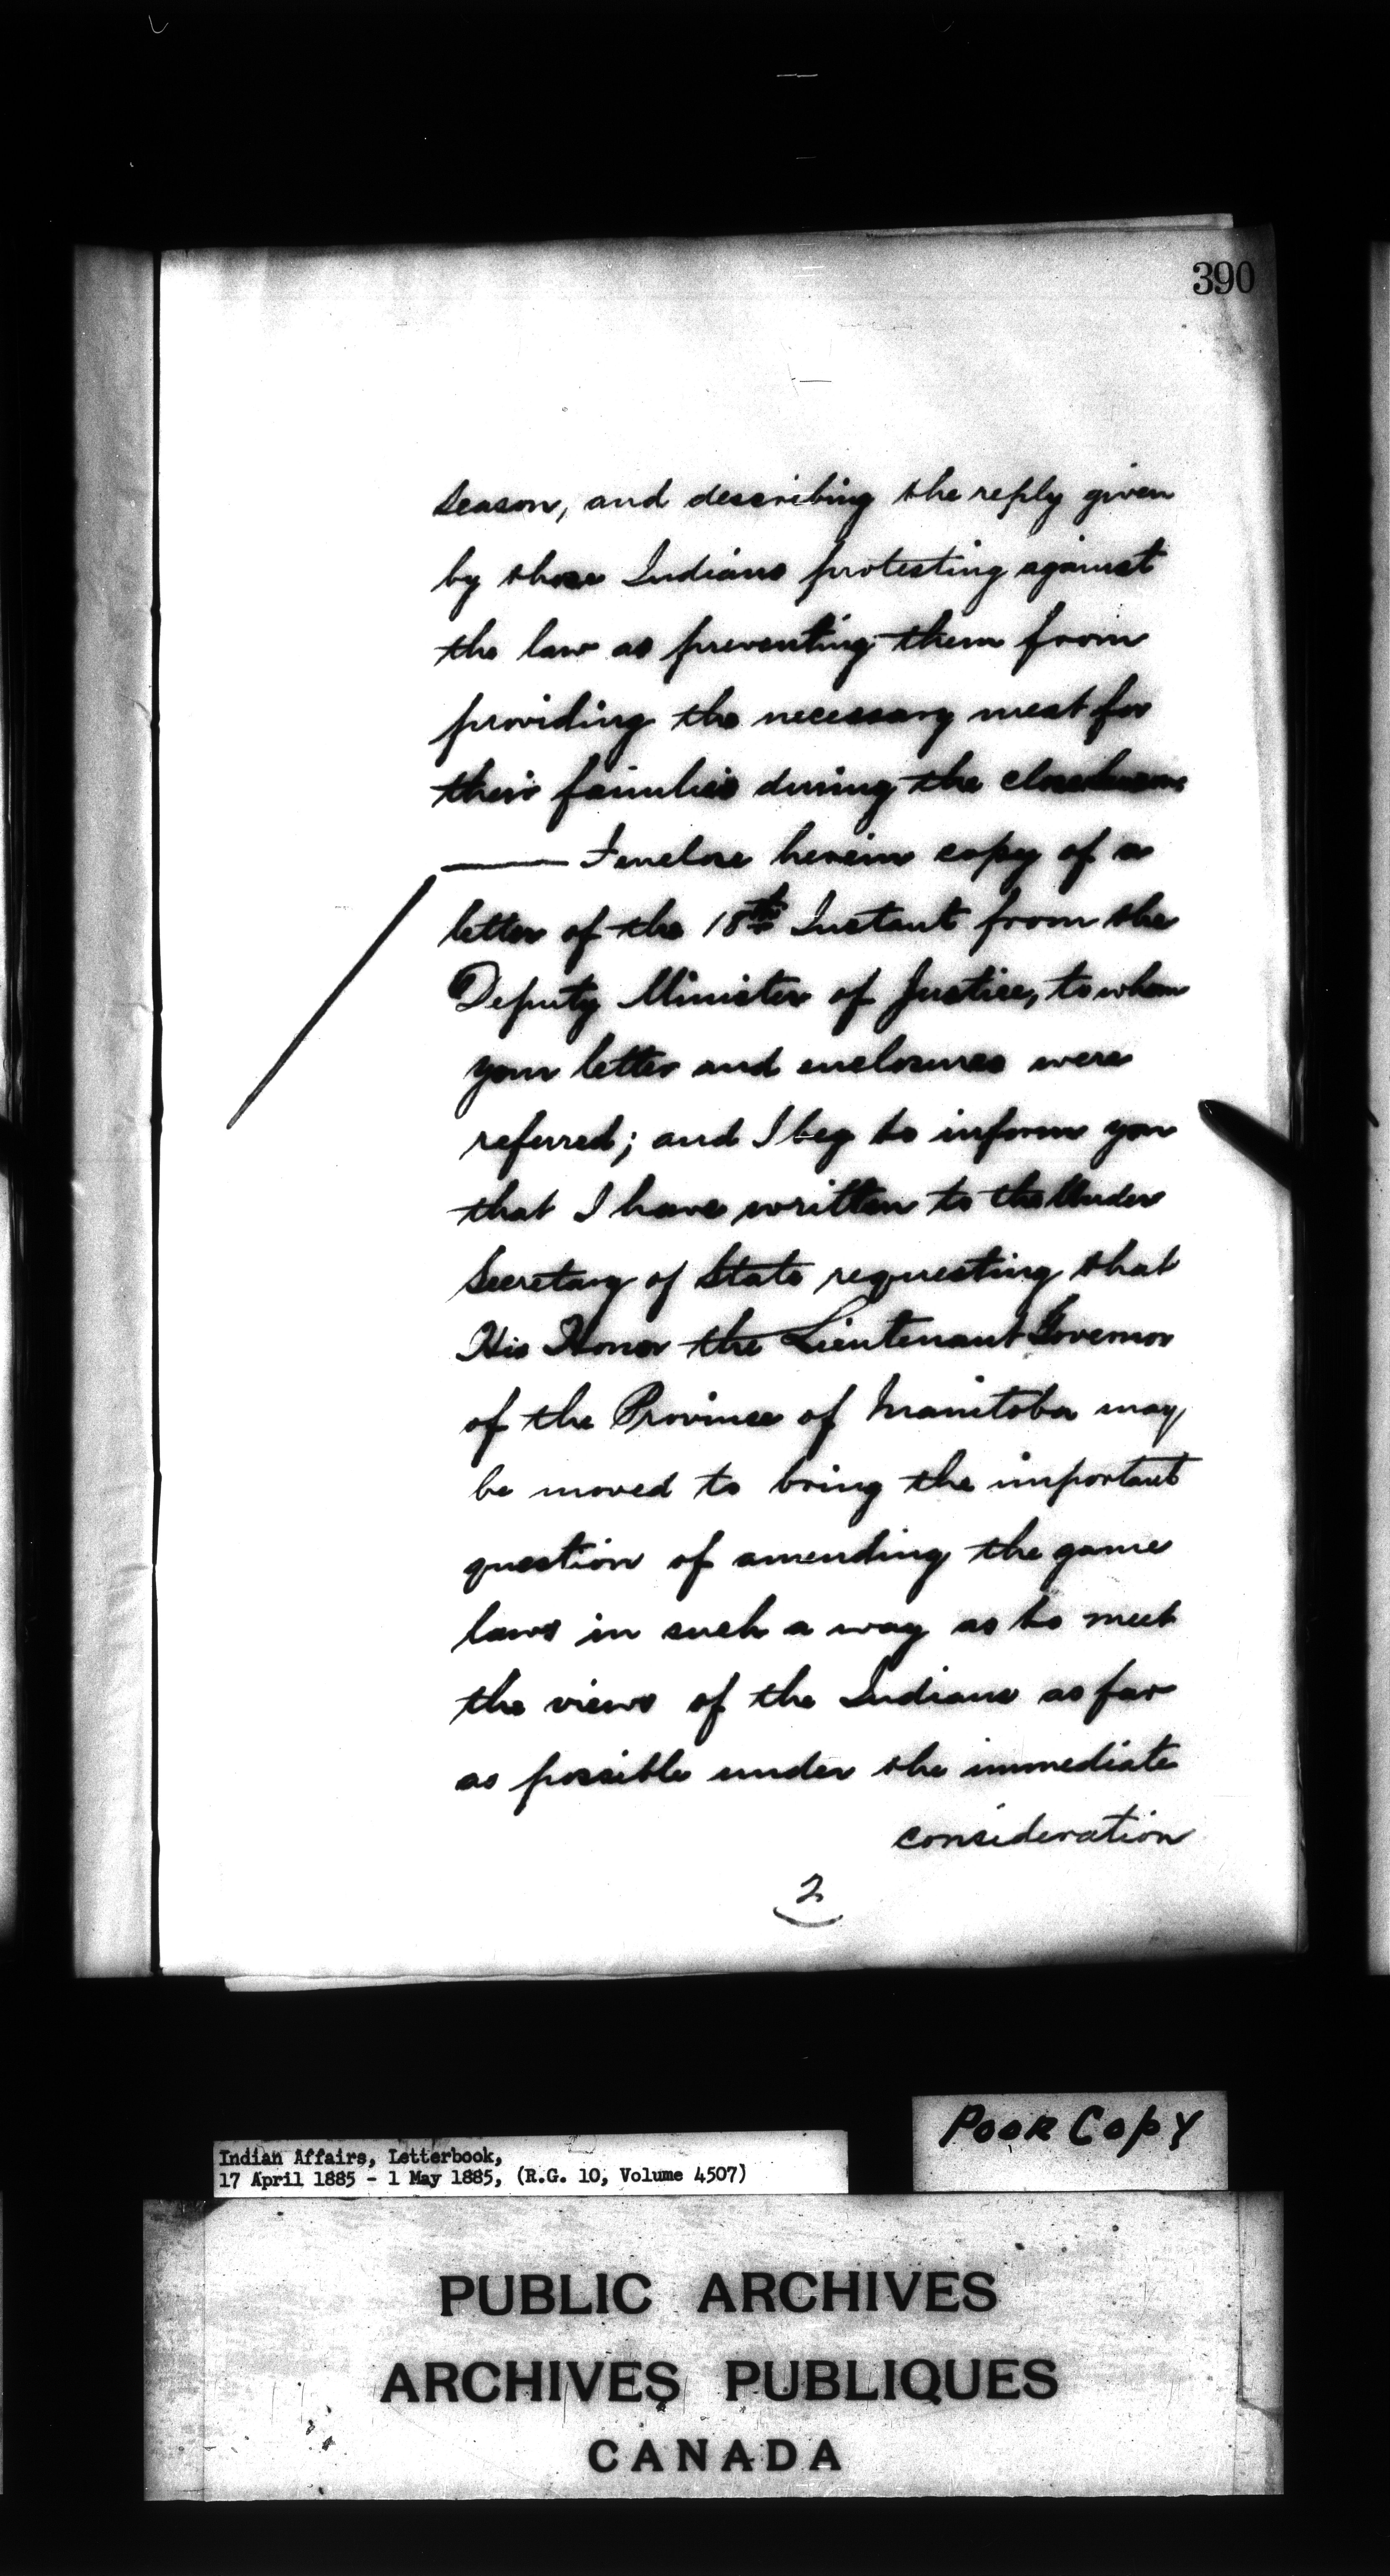 390
season, and describing the reply given
by those Indians protesting against
the law as preventing them from
providing the necessary meat for
their families during the close
I enclose herein copy of a
letter of the 18th Instant from the
Deputy Minister of Justice, to whom
your letter and enclosures were
referred; and I beg to inform you
that I have written to the Under
Secretary of State requesting that
His Honor the Lieutenant Governor
of the Province of Manitoba may
be moved to bring the important
question of amending the game
laws in such a way as to meet
the views of the Indians as far
as possible under the immediate
consideration
2
Poor Copy
Indian Affairs, Letterbook,
17 April 1885 - 1 May 1885, (R.G. 10, Volume 4507)
PUBLIC ARCHIVES
ARCHIVES PUBLIQUES
CANADA